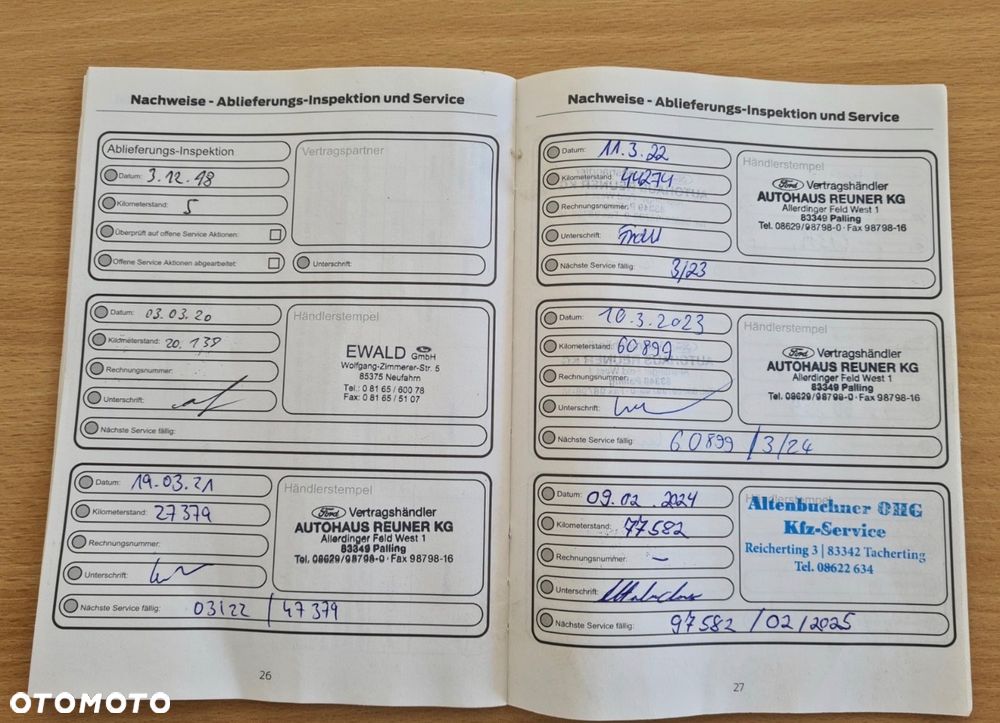 Nachweise - Ablieferungs-Inspektion und Service
Ablieferungs-Inspektion
Vertragspartner
Datum: 3.12.18
Kilometerstand: 5
Überprüft auf offene Service Aktionen:
Offene Service Aktionen abgearbeitet:
Unterschrift:
Datum: 03.03.20
Kilometerstand: 20.138
Rechnungsnummer:
Unterschrift:
Nächste Service fällig:
Händlerstempel
EWALD GmbH
Wolfgang-Zimmerer-Str. 5
85375 Neufahrn
Tel.: 0 81 65 / 600 78
Fax: 0 81 65 / 51 07
Datum: 19.03.21
Kilometerstand: 27379
Rechnungsnummer:
Unterschrift:
Nächste Service fällig: 03/22 / 47379
Händlerstempel
Ford Vertragshändler
AUTOHAUS REUNER KG
Allerdinger Feld West 1
83349 Palling
Tel. 08629/98798-0 · Fax 98798-16
26
Nachweise - Ablieferungs-Inspektion und Service
Datum: 11.3.22
Kilometerstand: 44274
Rechnungsnummer:
Unterschrift:
Nächste Service fällig: 3/23
Händlerstempel
Ford Vertragshändler
AUTOHAUS REUNER KG
Allerdinger Feld West 1
83349 Palling
Tel. 08629/98798-0 · Fax 98798-16
Datum: 10.3.2023
Kilometerstand: 60899
Rechnungsnummer:
Unterschrift:
Nächste Service fällig: 60899 / 3/24
Händlerstempel
Ford Vertragshändler
AUTOHAUS REUNER KG
Allerdinger Feld West 1
83349 Palling
Tel. 08629/98798-0 · Fax 98798-16
Datum: 09.02.2024
Kilometerstand: 77582
Rechnungsnummer: –
Unterschrift:
Nächste Service fällig: 97582 / 02/2025
Händlerstempel
Altenbuchner OHG
Kfz-Service
Reicherting 3 | 83342 Tacherting
Tel. 08622 634
27
OTOMOTO